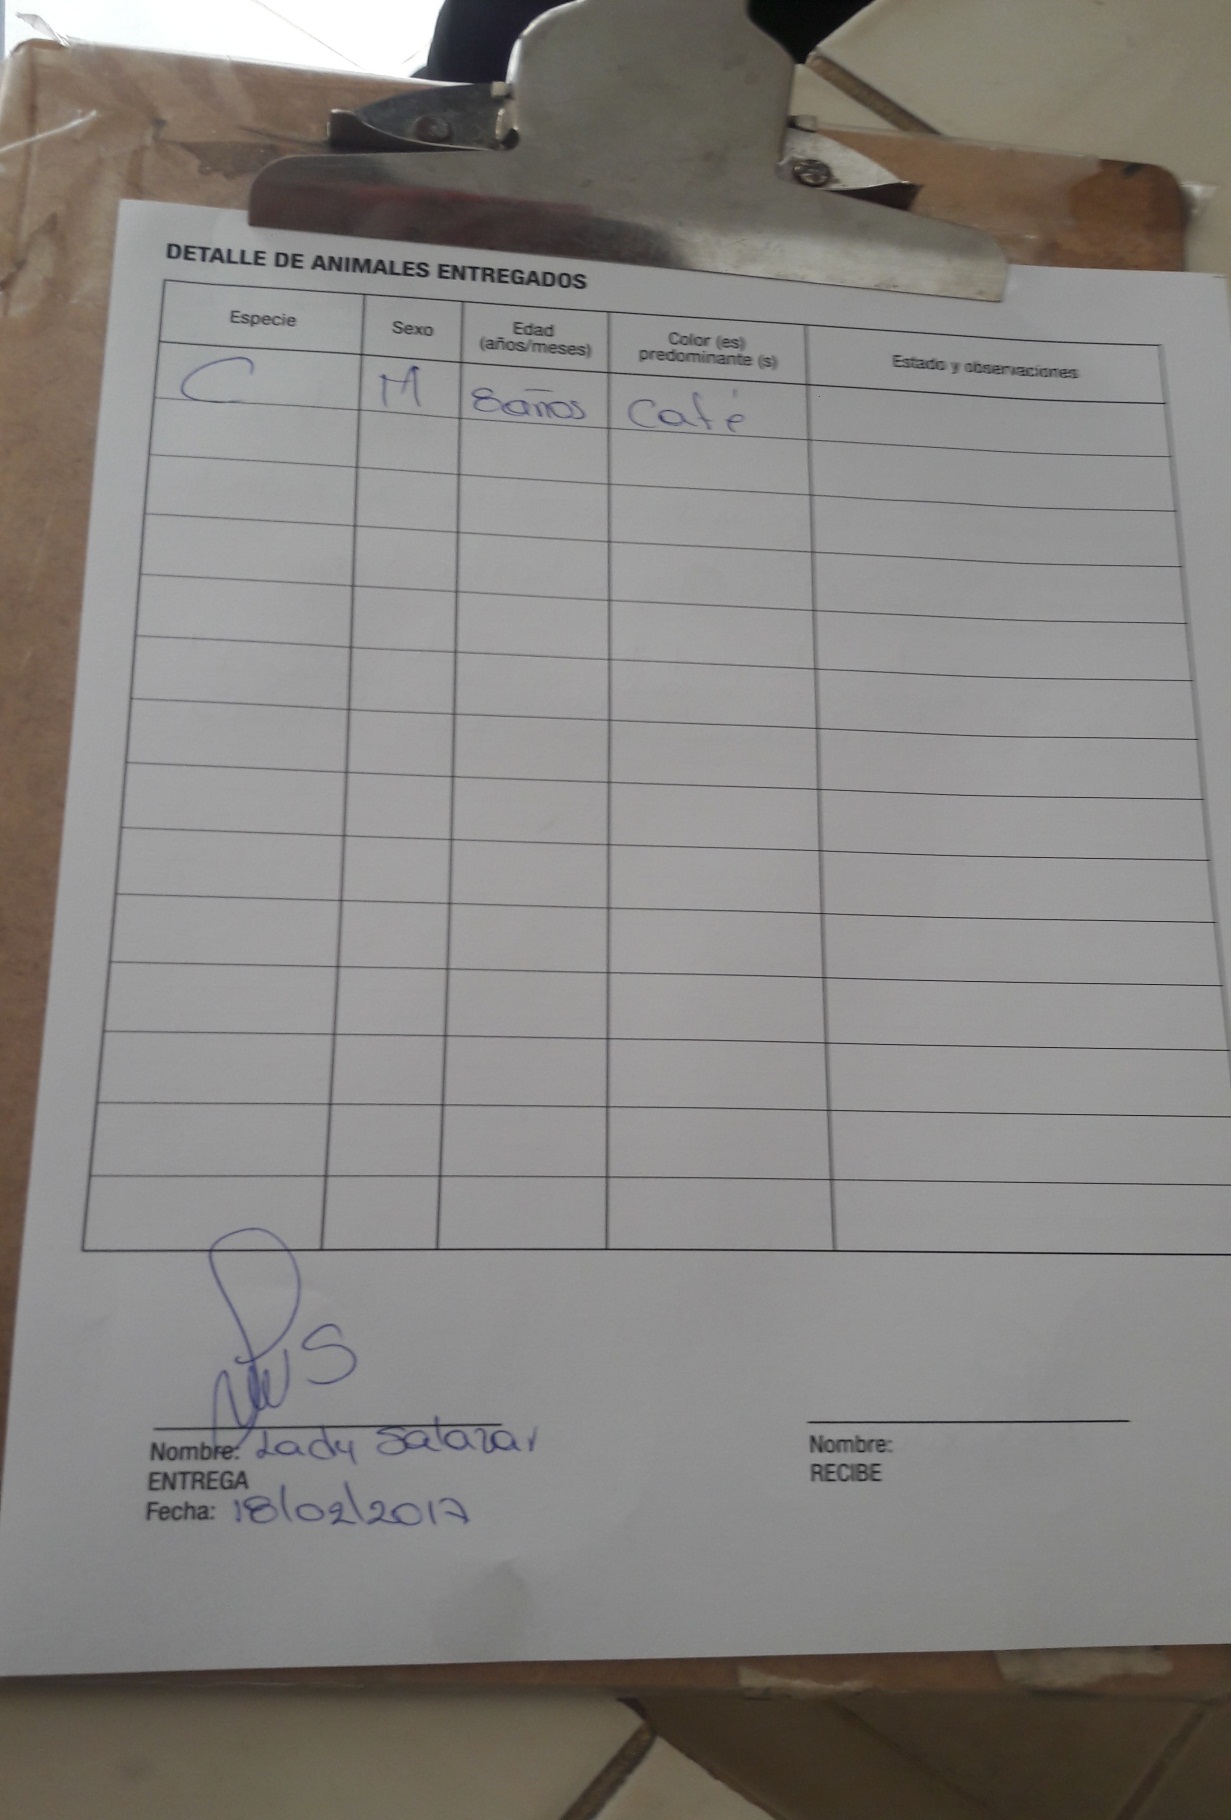 DETALLE DE ANIMALES ENTREGADOS
Especie Sexo Edad (años/meses) Color (es) predominante (s) Estado y observaciones
C M 8años Café
Nombre: Lady Salazar
ENTREGA
Fecha: 18/02/2017
Nombre:
RECIBE